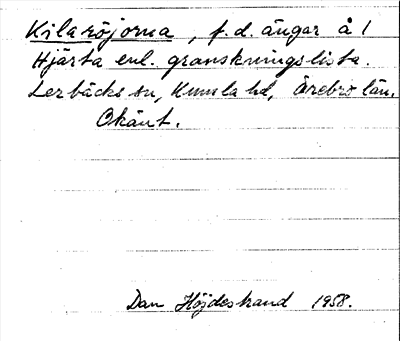 Kilaröjorna, f.d. ängar å 1
Hjärta enl. granskningslista.
Lerbäcks sn, Kumla hd, Örebro län.
Okänt.
Dan Höjdestrand 1958.